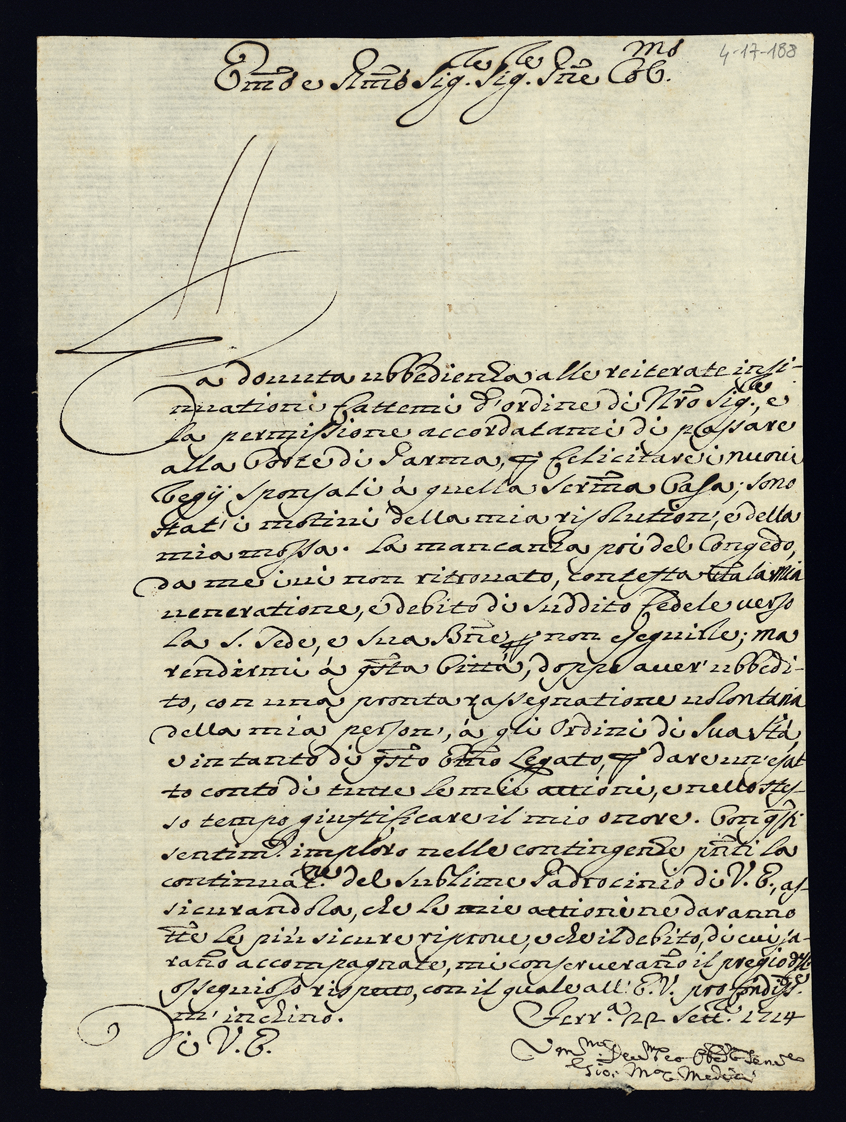 4-17-188
Em̃o e Rm̃o Sig.re Sig.re Pñe Col.mo
La douuta ubbedienza alle reiterate insi-
nuationi fattemi d'ordine di Nr̃o Sig.re, e
la permissione accordatami di passare
alla Corte di Parma, p felicitare i nuoui
Regij sponsali à quella Serm̃a Casa; sono
stat' i motiui della mia risolution', e della
mia mossa. La mancanza poi del Congedo,
da me iui non ritrouato, contesta tt̃a la mia
ueneratione, e debito di suddito fedele uerso
la S. Sede, e Sua Bñe p non eseguirle; ma
rendirmi à q̃sta Città, doppo auer' ubbedi-
to, con una pronta rassegnatione uolontaria
della mia person', à gli Ordini di Sua Stà
e intanto di q̃sto Em̃o Legato, p dare un' esat-
to conto di tutte le mie attioni, e nello stes-
so tempo giustificare il mio onore. Con q̃sti
sentim.ti imploro nelle contingenze pñti la
continuat.ne del sublime Padrocinio di V. E., as-
sicurandola, che le mie attioni ne daranno
tt̃e le più sicure riproue, e che il debito, di cui sa-
rañо accompagnate, mi conserueranño il pregio dell'
ossequioso rispetto, con il quale all' E. V. profondiss.te
m' inchino.
Ferr.a 22 Sett. 1714
Di V. E.
Vm.mo Deu.mo Obed.
Gio. Medici